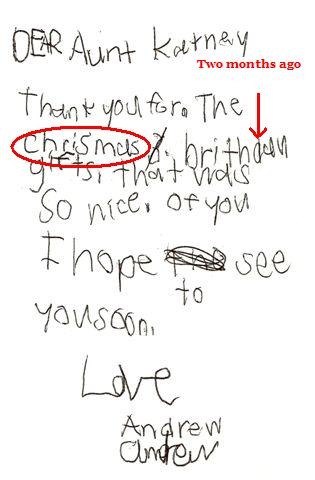 DEAR Aunt Katney
Two months ago
Thank you for. The
chrismas & brithday
gifts, that was
So nice, of you
I hope see
to
you soon.
Love
Andrew
andrew